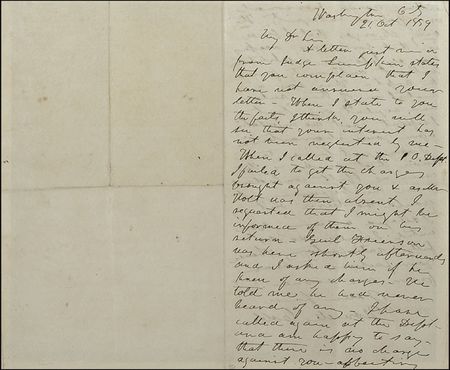 Washington City
21 Oct 1859
My Dr Sir
A letter just rec'd
from Judge states
that you complain that I
have not answered your
letter - When I state to you
the facts, I think, you will
see that your interest has
not been neglected by me
When I called at the P.O. Dept
I failed to get the charges
brought against you & as Mr
Holt was then absent I
requested that I might be
informed of them on his
return - Genl
was here shortly afterwards
and I asked him if he
knew of any charges. He
told me he had never
heard of any. I have
called again at the Dept
and am happy to say
that there is no charge
against you affecting